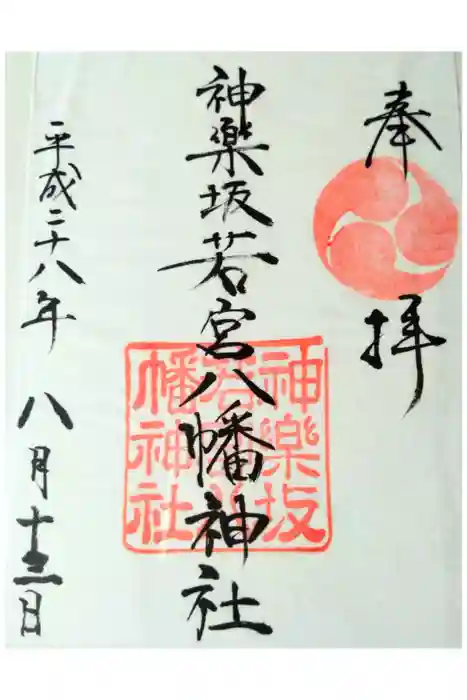 奉拝
神楽坂若宮八幡神社
神樂坂
若宮八
幡神社
平成二十八年 八月十三日